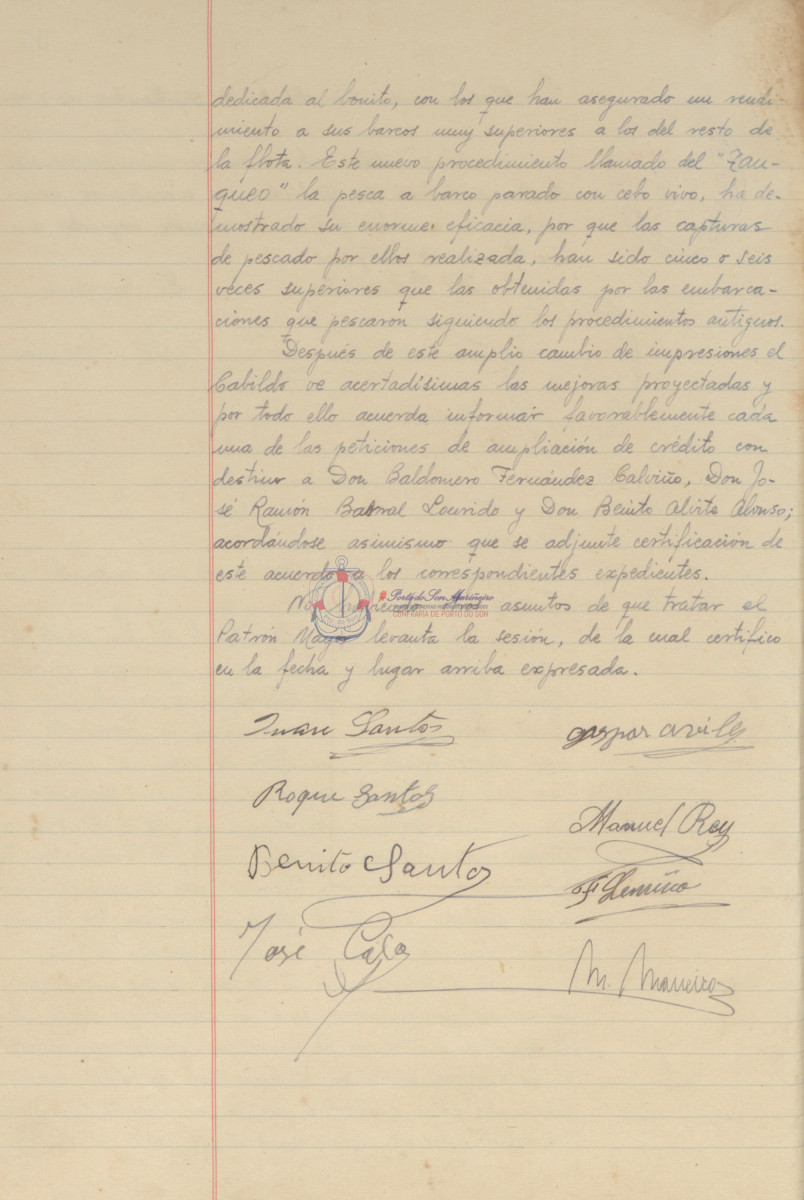 dedicada al bonito, con los que han asegurado un rendi-
miento a sus barcos muy superiores a los del resto de
la flota. Este nuevo procedimiento llamado del "Tan-
queo" la pesca a barco parado con cebo vivo, ha de-
mostrado su enorme eficacia, por que las capturas
de pescado por ellos realizada, han sido cinco o seis
veces superiores que las obtenidas por las embarca-
ciones que pescaron siguiendo los procedimientos antiguos.
Después de este amplio cambio de impresiones el
Cabildo ve acertadísimas las mejoras proyectadas y
por todo ello acuerda informar favorablemente cada
una de las peticiones de ampliación de crédito con
destino a Don Baldomero Fernández Calviño, Don Jo-
sé Ramón Lourido y Don Benito Alvite Alonso;
acordándose asimismo que se adjunte certificación de
este acuerdo a los correspondientes expedientes.
No habiendo otros asuntos de que tratar el
Porto do Son Mariñeiro
CONFRARÍA DE PORTO DO SON
Patrón Mayor levanta la sesión, de la cual certifico
en la fecha y lugar arriba expresada.
Juan Santos
gaspar aviles
Roque Santos
Manuel Rey
Benito Santos
José
M. Maneiro